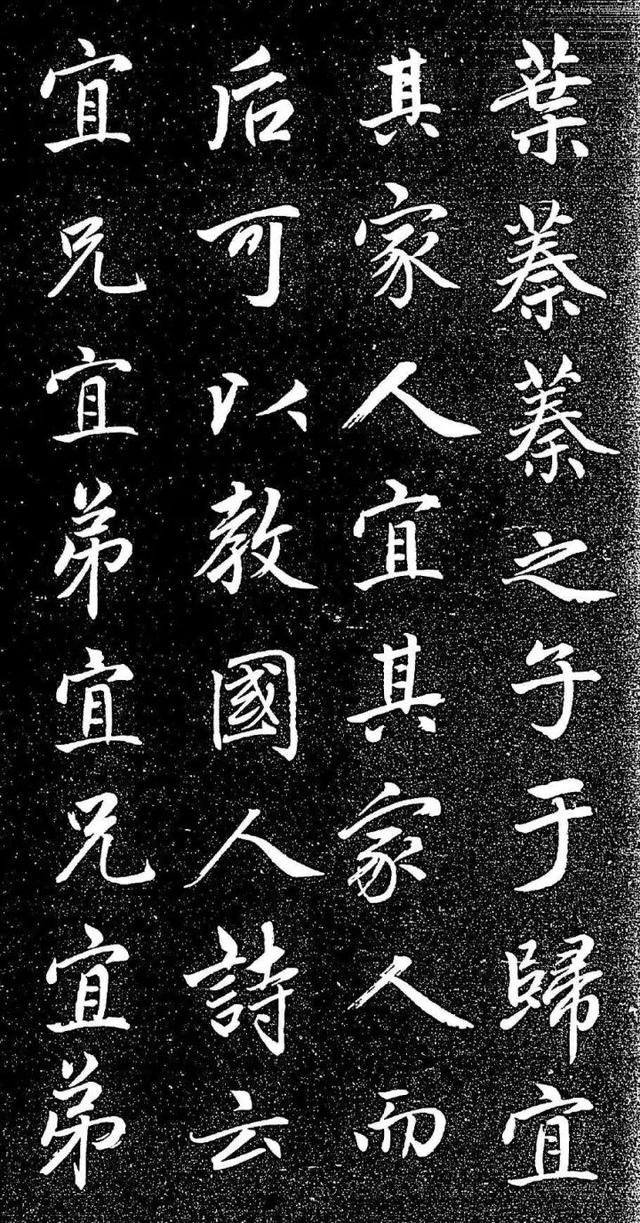 葉蓁蓁之子于歸宜
其家人宜其家人而
后可以教國人詩云
宜兄宜弟宜兄宜弟